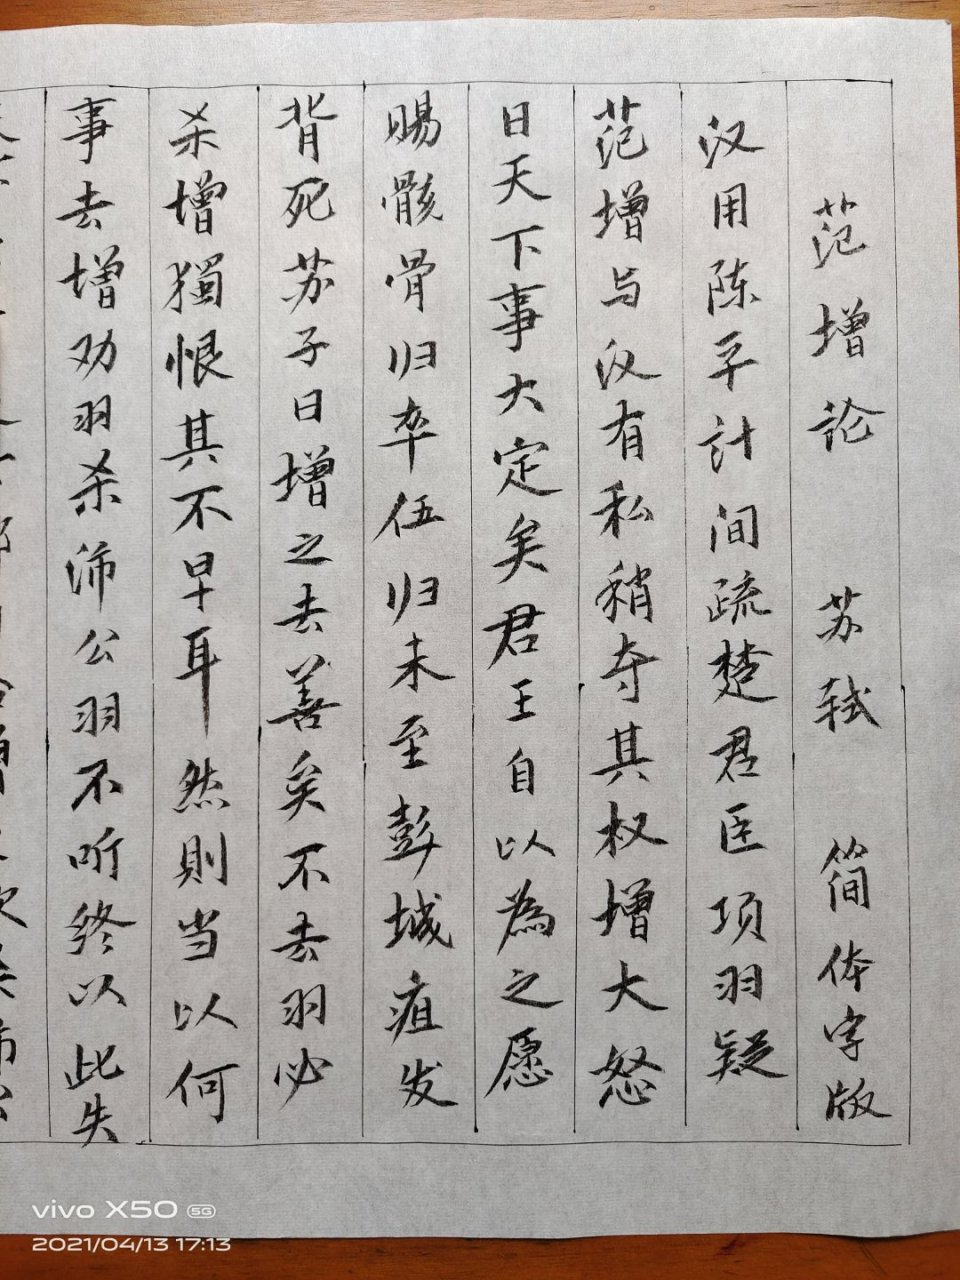 范增论 苏轼 简体字版
汉用陈平计间疏楚君臣项羽疑
范增与汉有私稍夺其权增大怒
曰天下事大定矣君王自以為之愿
赐骸骨归卒伍归未至彭城疽发
背死苏子曰增之去善矣不去羽必
杀增獨恨其不早耳然則当以何
事去增劝羽杀沛公羽不听终以此失
vivo X50 5G
2021/04/13 17:13